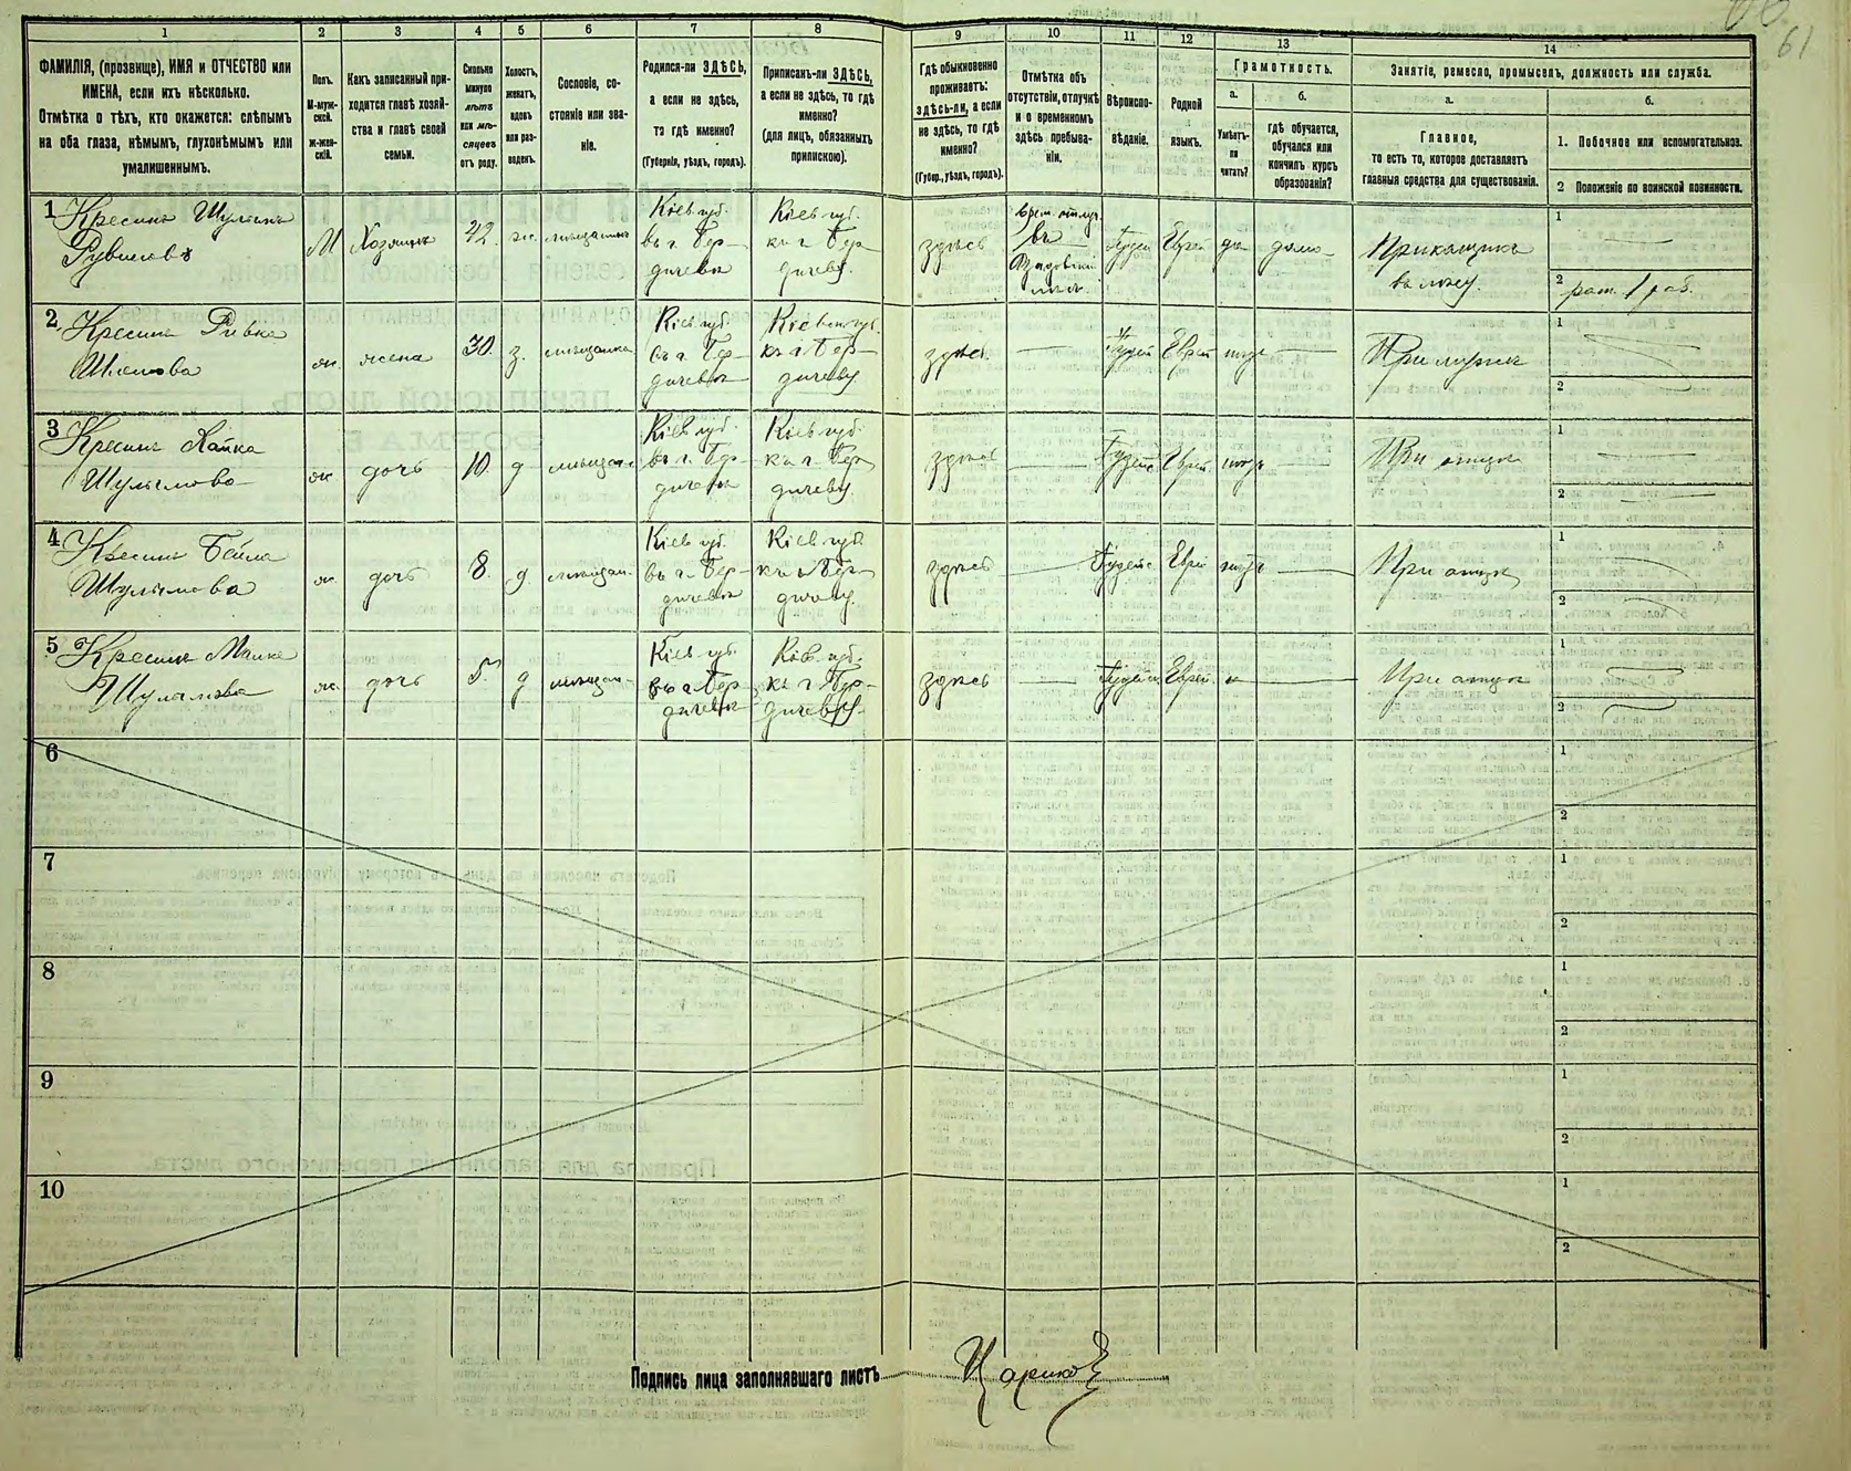 61
1
2
3
4
5
6
7
8
9
10
11
12
13
14
ФАМИЛІЯ, (прозвище), ИМЯ и ОТЧЕСТВО или
ИМЕНА, если ихъ нѣсколько.
Отмѣтка о тѣхъ, кто окажется: слѣпымъ
на оба глаза, нѣмымъ, глухонѣмымъ или
умалишеннымъ.
Полъ.
М-муж-
ской.
ж-жен-
скій.
Какъ записанный при-
ходится главѣ хозяй-
ства и главѣ своей
семьи.
Сколько
минуло
лѣтъ
или мѣ-
сяцевъ
отъ роду.
Холостъ,
женатъ,
вдовъ
или раз-
веденъ.
Сословіе, со-
стояніе или зва-
ніе.
Родился-ли ЗДѢСЬ,
а если не здѣсь,
то гдѣ именно?
(Губернія, уѣздъ, городъ).
Приписанъ-ли ЗДѢСЬ,
а если не здѣсь, то гдѣ
именно?
(для лицъ, обязанныхъ
припискою).
Гдѣ обыкновенно
проживаетъ:
ЗДѢСЬ-ЛИ, а если
не здѣсь, то гдѣ
именно?
(Губер., уѣздъ, городъ).
Отмѣтка объ
отсутствіи, отлучкѣ
и о временномъ
здѣсь пребыва-
ніи.
Вѣроиспо-
вѣданіе.
Родной
языкъ.
Грамотность.
а.
Умѣетъ-
ли
читать?
б.
гдѣ обучается,
обучался или
кончилъ курсъ
образованія?
Занятіе, ремесло, промыселъ, должность или служба.
а.
Главное,
то есть то, которое доставляетъ
главныя средства для существованія.
б.
1. Побочное или вспомогательное.
2 Положеніе по воинской повинности.
1
Кресинъ Шулимъ
Рувиновъ
М
Хозяинъ
42.
ж.
мѣщанинъ
Кіев. губ.
въ г. Бер-
дичевѣ
Кіев. губ.
къ г. Бер-
дичеву.
здѣсь
въ
Іудей
Еврей
да
дома
Прикащикъ
въ лѣсу.
1
2
2
Кресинъ Ривка
ж.
жена
30.
з.
мѣщанка
Кіев. губ.
въ г. Бер-
дичевѣ
Кіевск. губ.
къ г. Бер-
дичеву.
здѣсь.
Іудей
Еврей
нѣтъ
При мужѣ
1
2
3
Кресинъ Хайка
Шулимова
ж.
дочь
10.
д
мѣщан.
Кіев. губ.
въ г. Бер-
дичевѣ
Кіев. губ.
къ г. Бер-
дичеву.
здѣсь
Іудейс
Еврей.
нѣтъ
При отцѣ
1
2
4
Кресинъ Бейла
Шулимова
ж.
дочь
8.
д
мѣщан.
Кіев. губ.
въ г. Бер-
дичевѣ
Кіев. губ.
къ г. Бер-
дичеву.
здѣсь
Іудейс
Еврей
нѣтъ
При отцѣ
1
2
5
Кресинъ Малка
Шулимова
ж.
дочь
5.
д
мѣщан.
Кіев. губ.
въ г. Бер-
дичевѣ
Кіев. губ.
къ г. Бер-
дичеву.
здѣсь
Іудейс.
Еврей
н
При отцѣ
1
2
6
1
2
7
1
2
8
1
2
9
1
2
10
1
2
Подпись лица заполнявшаго листъ